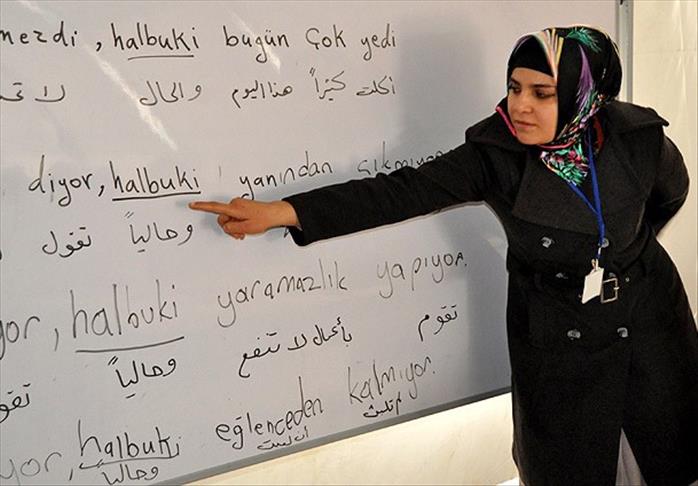 mezdi, halbuki bugün çok yedi
والحال هذا اليوم كثيراً أكلت
diyor, halbuki yanından çıkmıyor
تقول وحالياً
yor, halbuki yaramazlık yapıyor.
وحالياً بأعمال لا تنفع تقوم
yor, halbuki eğlenceden kalmıyor.
وحالياً